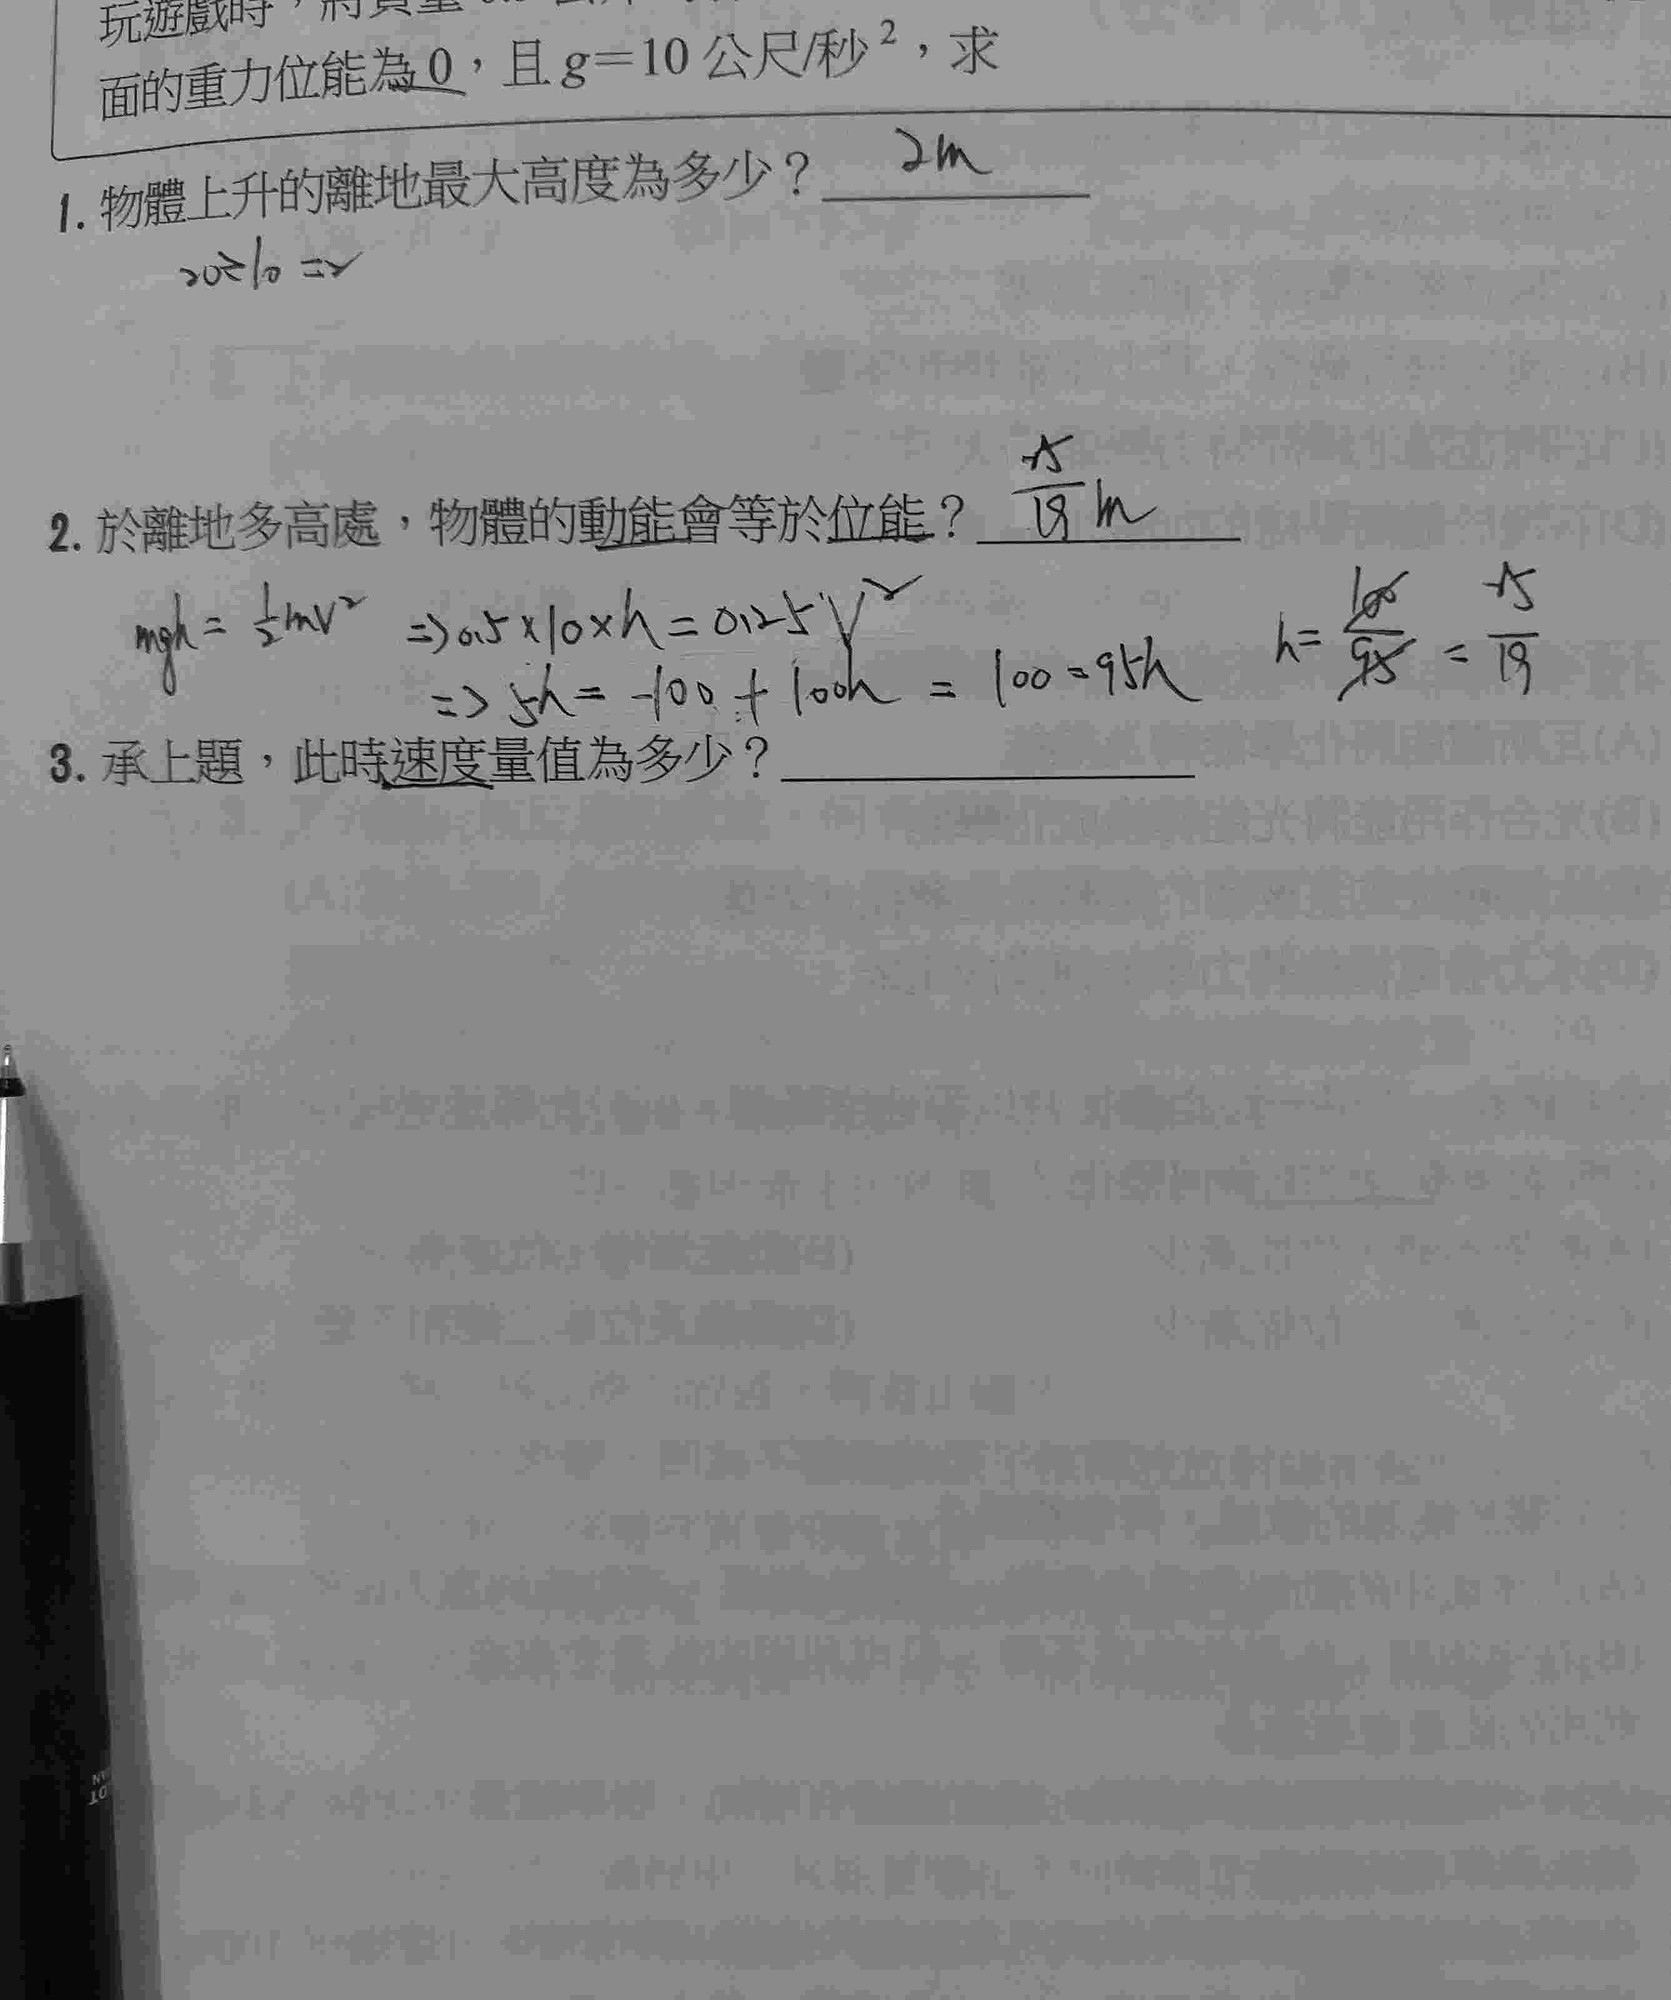 玩遊戲時，將質量
面的重力位能為0，且g=10公尺/秒²，求
1. 物體上升的離地最大高度為多少？ 2m
20÷10=2
2. 於離地多高處，物體的動能會等於位能？
mgh=½mv² ⇒0.5×10×h=0.25V²
⇒5h=-100+100h = 100=95h h=100/95=
3. 承上題，此時速度量值為多少？